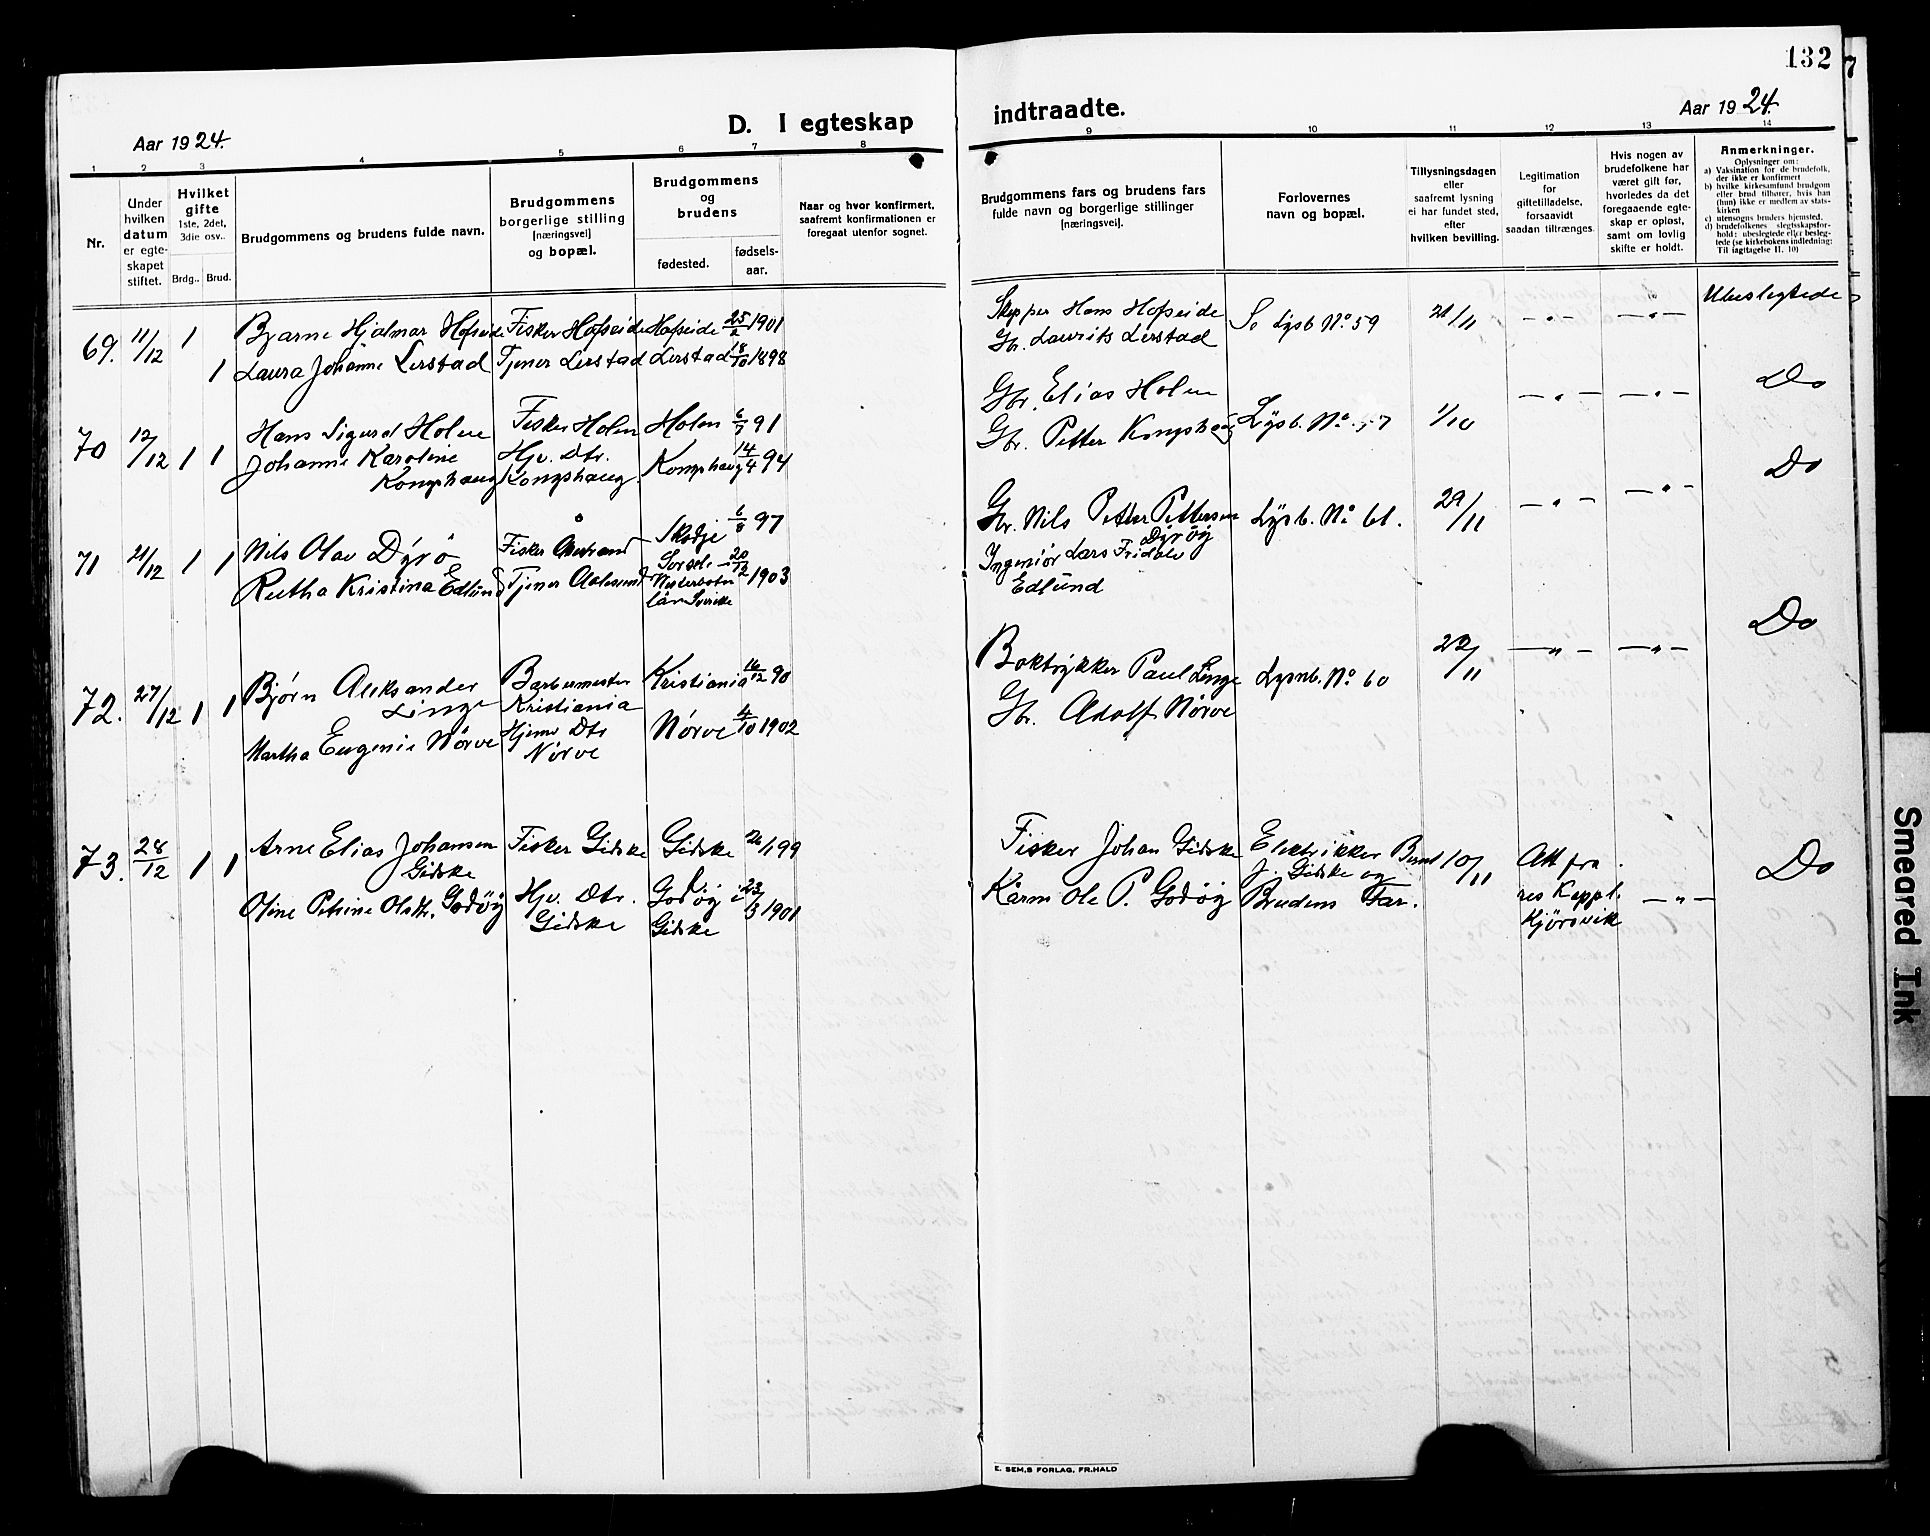 132
7
Aar 1924.
D. I egteskap
indtraadte.
Aar 1924.
1 2 3 4 5 6 7 8
9 10 11 12 13 14
Nr.
Under
hvilken
datum
er egte-
skapet
stiftet.
Hvilket
gifte
1ste, 2det,
3die osv..
Brdg.. Brud.
Brudgommens og brudens fulde navn.
Brudgommens
borgerlige stilling
[næringsvei]
og bopæl.
Brudgommens
og
brudens
fødested.
fødsels-
aar.
Naar og hvor konfirmert,
saafremt konfirmationen er
foregaat utenfor sognet.
Brudgommens fars og brudens fars
fulde navn og borgerlige stillinger
[næringsvei].
Forlovernes
navn og bopæl.
Tillysningsdagen
eller
saafremt lysning
ei har fundet sted,
efter
hvilken bevilling.
Legitimation
for
giftetilladelse,
forsaavidt
saadan tiltrænges.
Hvis nogen av
brudefolkene har
været gift før,
hvorledes da det
foregaaende egte-
skap er opløst,
samt om lovlig
skifte er holdt.
Anmerkninger.
Oplysninger om:
a) Vaksination for de brudefolk,
der ikke er konfirmert
b) hvilke kirkesamfund brudgom
eller brud tilhører, hvis han
(hun) ikke er medlem av stats-
kirken
c) utensogns bruders hjemsted.
d) brudefolkenes slegtsskapsfor-
hold: ubeslegtede eller besleg-
tede (se kirkebokens indledning:
Til iagttagelse II. 10)
69. 11/12 1 Bjarne Hjalmar Hofseide Fisker Hofseide Hofseide 25/2 1901
1 Laura Johanne Lerstad Tjener Lerstad Lerstad 18/10 1898
Skipper Hans Hofseide
Gbr. Laurits Lerstad
Se Lysb No 59 21/11 — " — — " — Ubeslegtede
70 12/12 1 1 Hans Sigurd Holen Fisker Holen Holen 6/7 91
Johanne Karoline Hjv. Dtr. Kongshaug 14/4 94
Kongshaug Kongshaug
Gbr. Elias Holen
Gbr. Petter Kongshaug Lysb. No 57 1/10 — " — — " — Do
71 21/12 1 1 Nils Olav Dyrö Fisker Skodje 6/8 97
Rutha Kristina Edlund Tjener Aalesund Sorsele i 20/12 1903
Vesterbotn
län Sverike
Gbr. Nils Petter Pettersen
Dyröy
Ingeniör Lars Fridolv
Edlund
Lysb. No 61. 29/11 — " — — " — Do
72. 27/12 1 1 Bjørn Aleksander
Linge
Barbermester
Kristiania
Kristiania 16/12 90
Martha Eugenie Nörve Hjemv Dtr
Nörve
Nörve 4/10 1902
Boktrykker Paul Linge
Gbr. Adolf Nörve
Lysnb. No 60 22/11 — " — — " — Do
73. 28/12 1 1 Arne Elias Johansen
Gidske
Fisker Gidske Gidske 21/1 99
Oline Petrine Olsdtr. Godöy Hjv. Dtr.
Gidske
Godöy i
Gidske
23/3 1901
Fisker Johan Gidske
Kårm Ole P. Godöy
Elektrikker Bernt
J. Gidske og
Brudens Far.
10/11 Att fra
res Kappl.
Kjörsvik
— " — Do
E. SEM,S FORLAG, FR.HALD
Smeared Ink